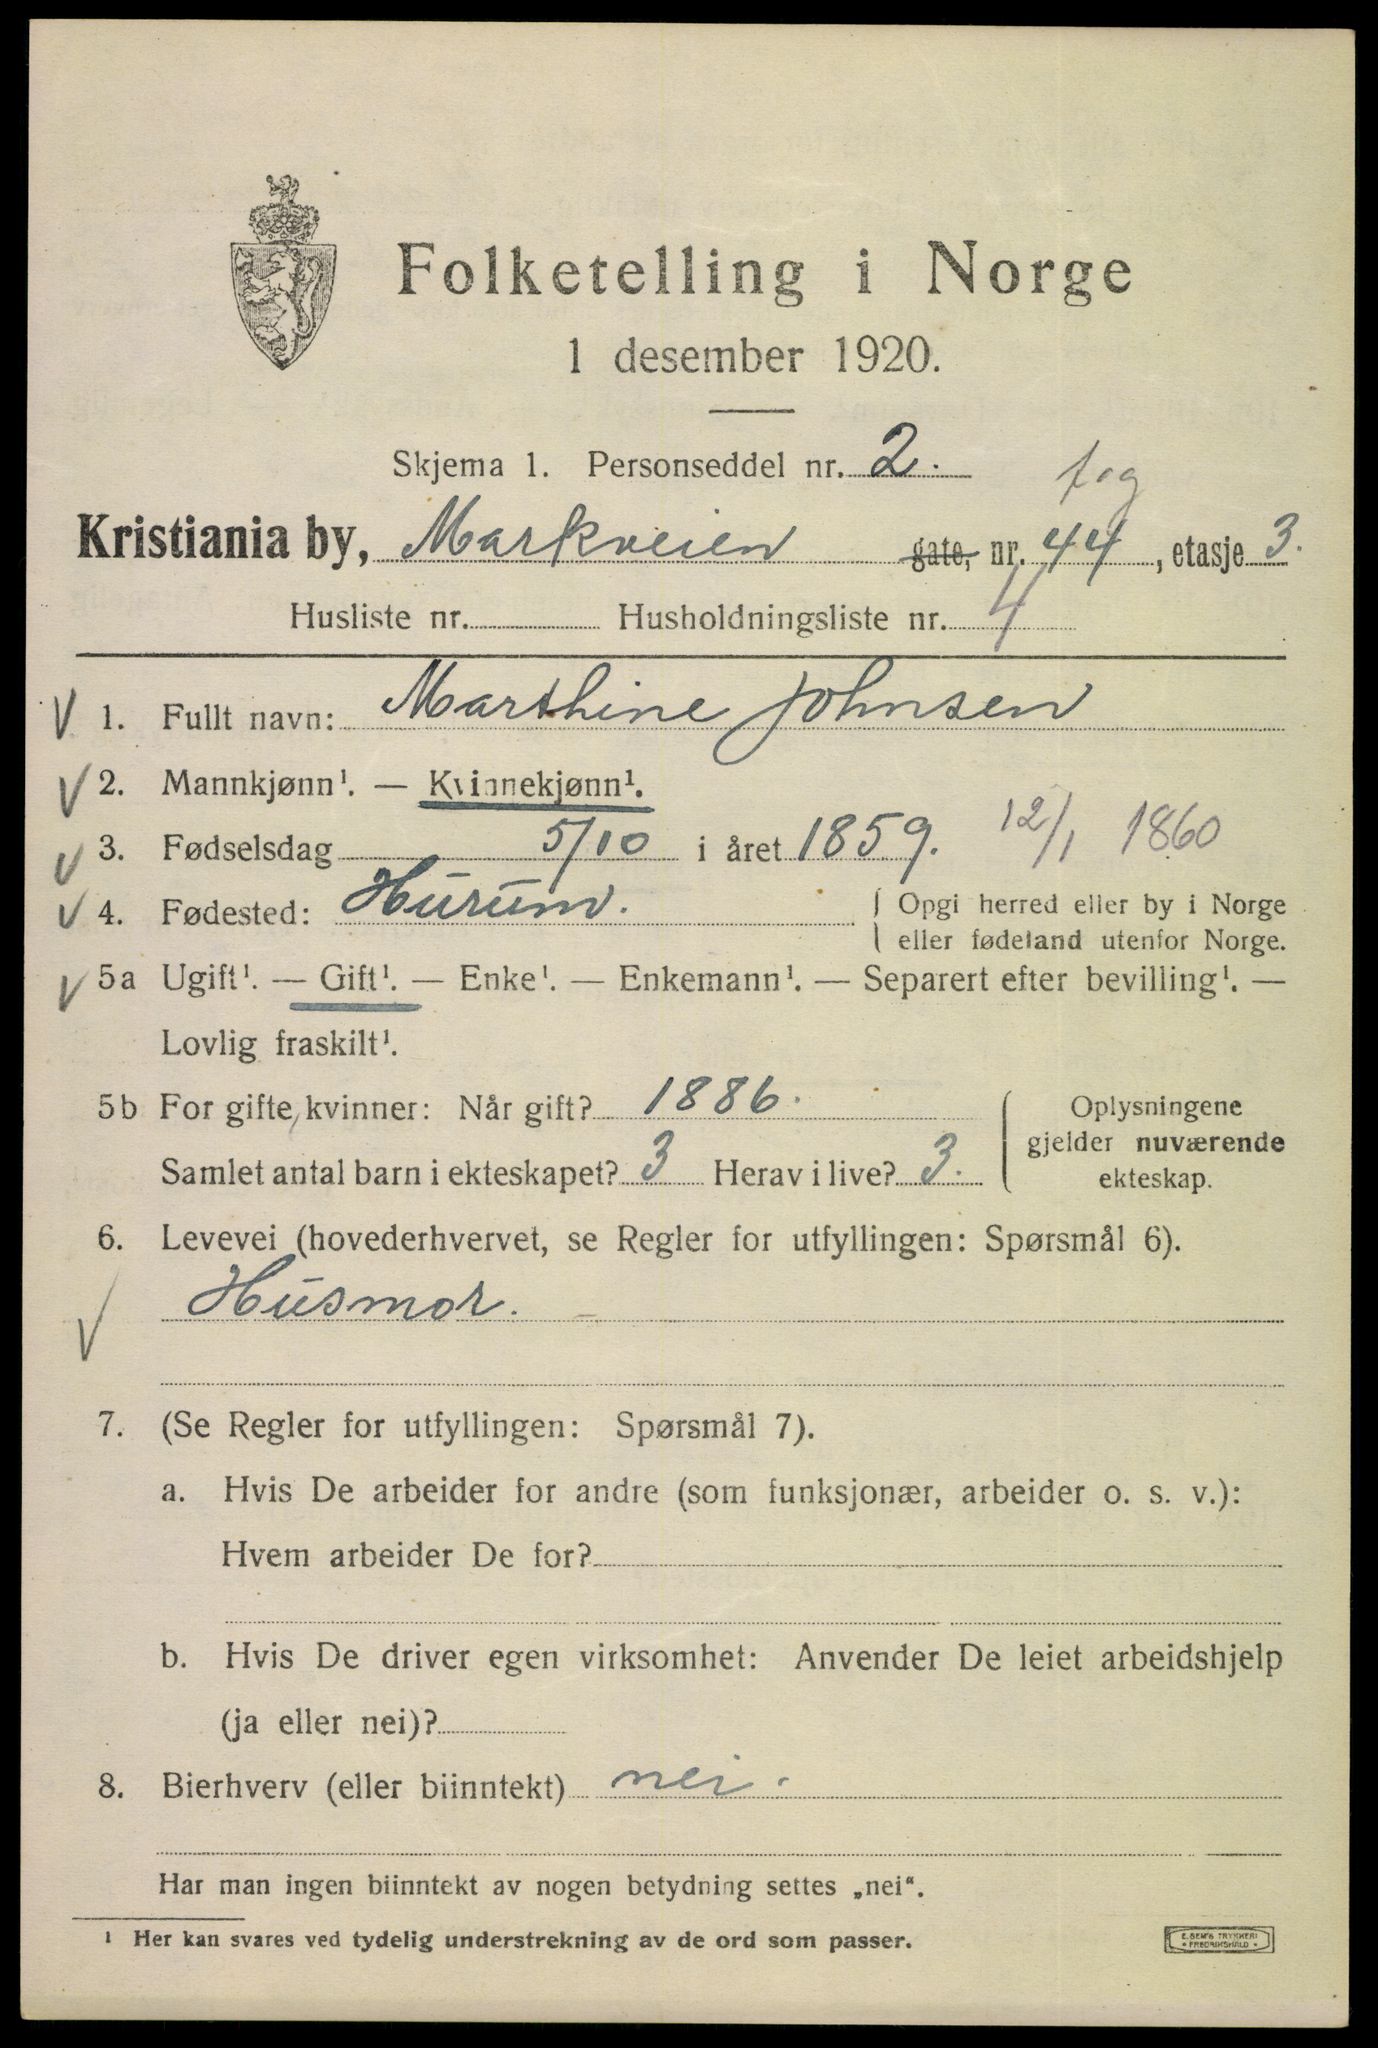 Folketelling i Norge
1 desember 1920.
Skjema 1. Personseddel nr. 2.
f.g
Kristiania by, Markveien gate, nr. 44, etasje 3.
Husliste nr. Husholdningsliste nr. 4
V 1. Fullt navn: Marthine Johnsen
V 2. Mannkjønn¹. — Kvinnekjønn¹.
V 3. Fødselsdag 5/10 i året 1859. 12/1 1860
V 4. Fødested: Hurum. { Opgi herred eller by i Norge
eller fødeland utenfor Norge.
V 5a Ugift¹. — Gift¹. — Enke¹. — Enkemann¹. — Separert efter bevilling¹. —
Lovlig fraskilt¹.
5b For gifte kvinner: Når gift? 1886. { Oplysningene
gjelder nuværende
Samlet antal barn i ekteskapet? 3 Herav i live? 3.
ekteskap.
6. Levevei (hovederhvervet, se Regler for utfyllingen: Spørsmål 6).
V Husmor.
7. (Se Regler for utfyllingen: Spørsmål 7).
a. Hvis De arbeider for andre (som funksjonær, arbeider o. s. v.):
Hvem arbeider De for?
b. Hvis De driver egen virksomhet: Anvender De leiet arbeidshjelp
(ja eller nei)?
8. Bierhverv (eller biinntekt) nei.
Har man ingen biinntekt av nogen betydning settes „nei“.
¹ Her kan svares ved tydelig understrekning av de ord som passer.
E. SEM'S TRYKKERI
• FREDRIKSHALD •